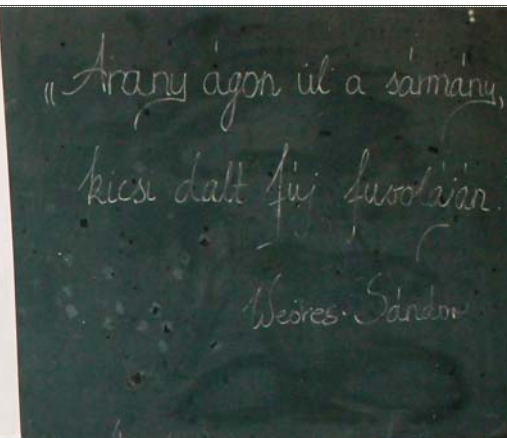 „Arany ágon ül a sármány,
kicsi dalt fúj fuvoláján.
Weöres Sándor